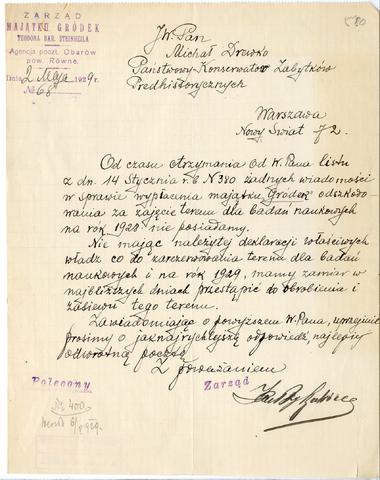 580
ZARZĄD
MAJĄTKU GRÓDEK
TEODORA BAR. STEINHEILA
Agencja poczt. Obarów
pow. Równe.
Dnia 2 Maja 1929 r.
№ 68
JW. Pan
Michał Drewko
Państwowy Konserwator Zabytków
Predhistorycznych
Warszawa
Nowy Świat 72.
Od czasu otrzymania od W. Pana listu
z dn. 14 Stycznia r. b N 380 żadnych wiadomości
w sprawie wypłacenia majątku "Gródek" odszkodo-
wania za zajęcie terenu dla badań naukowych
na rok 1928 nie posiadamy.
Nie mając należytej deklaracji właściwych
władz co do zarezerwowania terena dla badań
naukowych i na rok 1929, mamy zamiar w
najbliższych dniach przestąpić do obrobienia i
zasiewu tego terenu.
Zawiadomiając o powyższem W. Pana, uprzejmie
prosimy o jaknajrychlejszą odpowiedź, najlepiej
odwrotną pocztą.
Z poważaniem
Polecony
Zarząd
№ 400
1929.